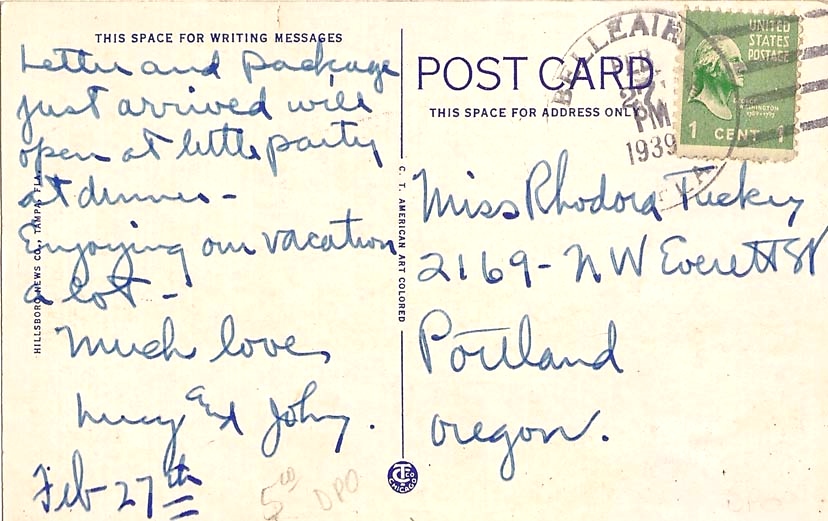 THIS SPACE FOR WRITING MESSAGES
Letter and package
just arrived will
open at little party
at dinner -
Enjoying our vacation
a lot -
Much love,
Lucy and John.
Feb 27th
5.00 DPO
HILLSBORO NEWS CO., TAMPA, FLA.
C. T. AMERICAN ART COLORED
CHICAGO
POST CARD
THIS SPACE FOR ADDRESS ONLY
BELLEAIR
FEB
27
PM
1939
FLA
UNITED
STATES
POSTAGE
GEORGE
WASHINGTON
1789-1797
1 CENT 1
Miss Rhodora Tuckey
2169 - N W Everett St
Portland
Oregon.